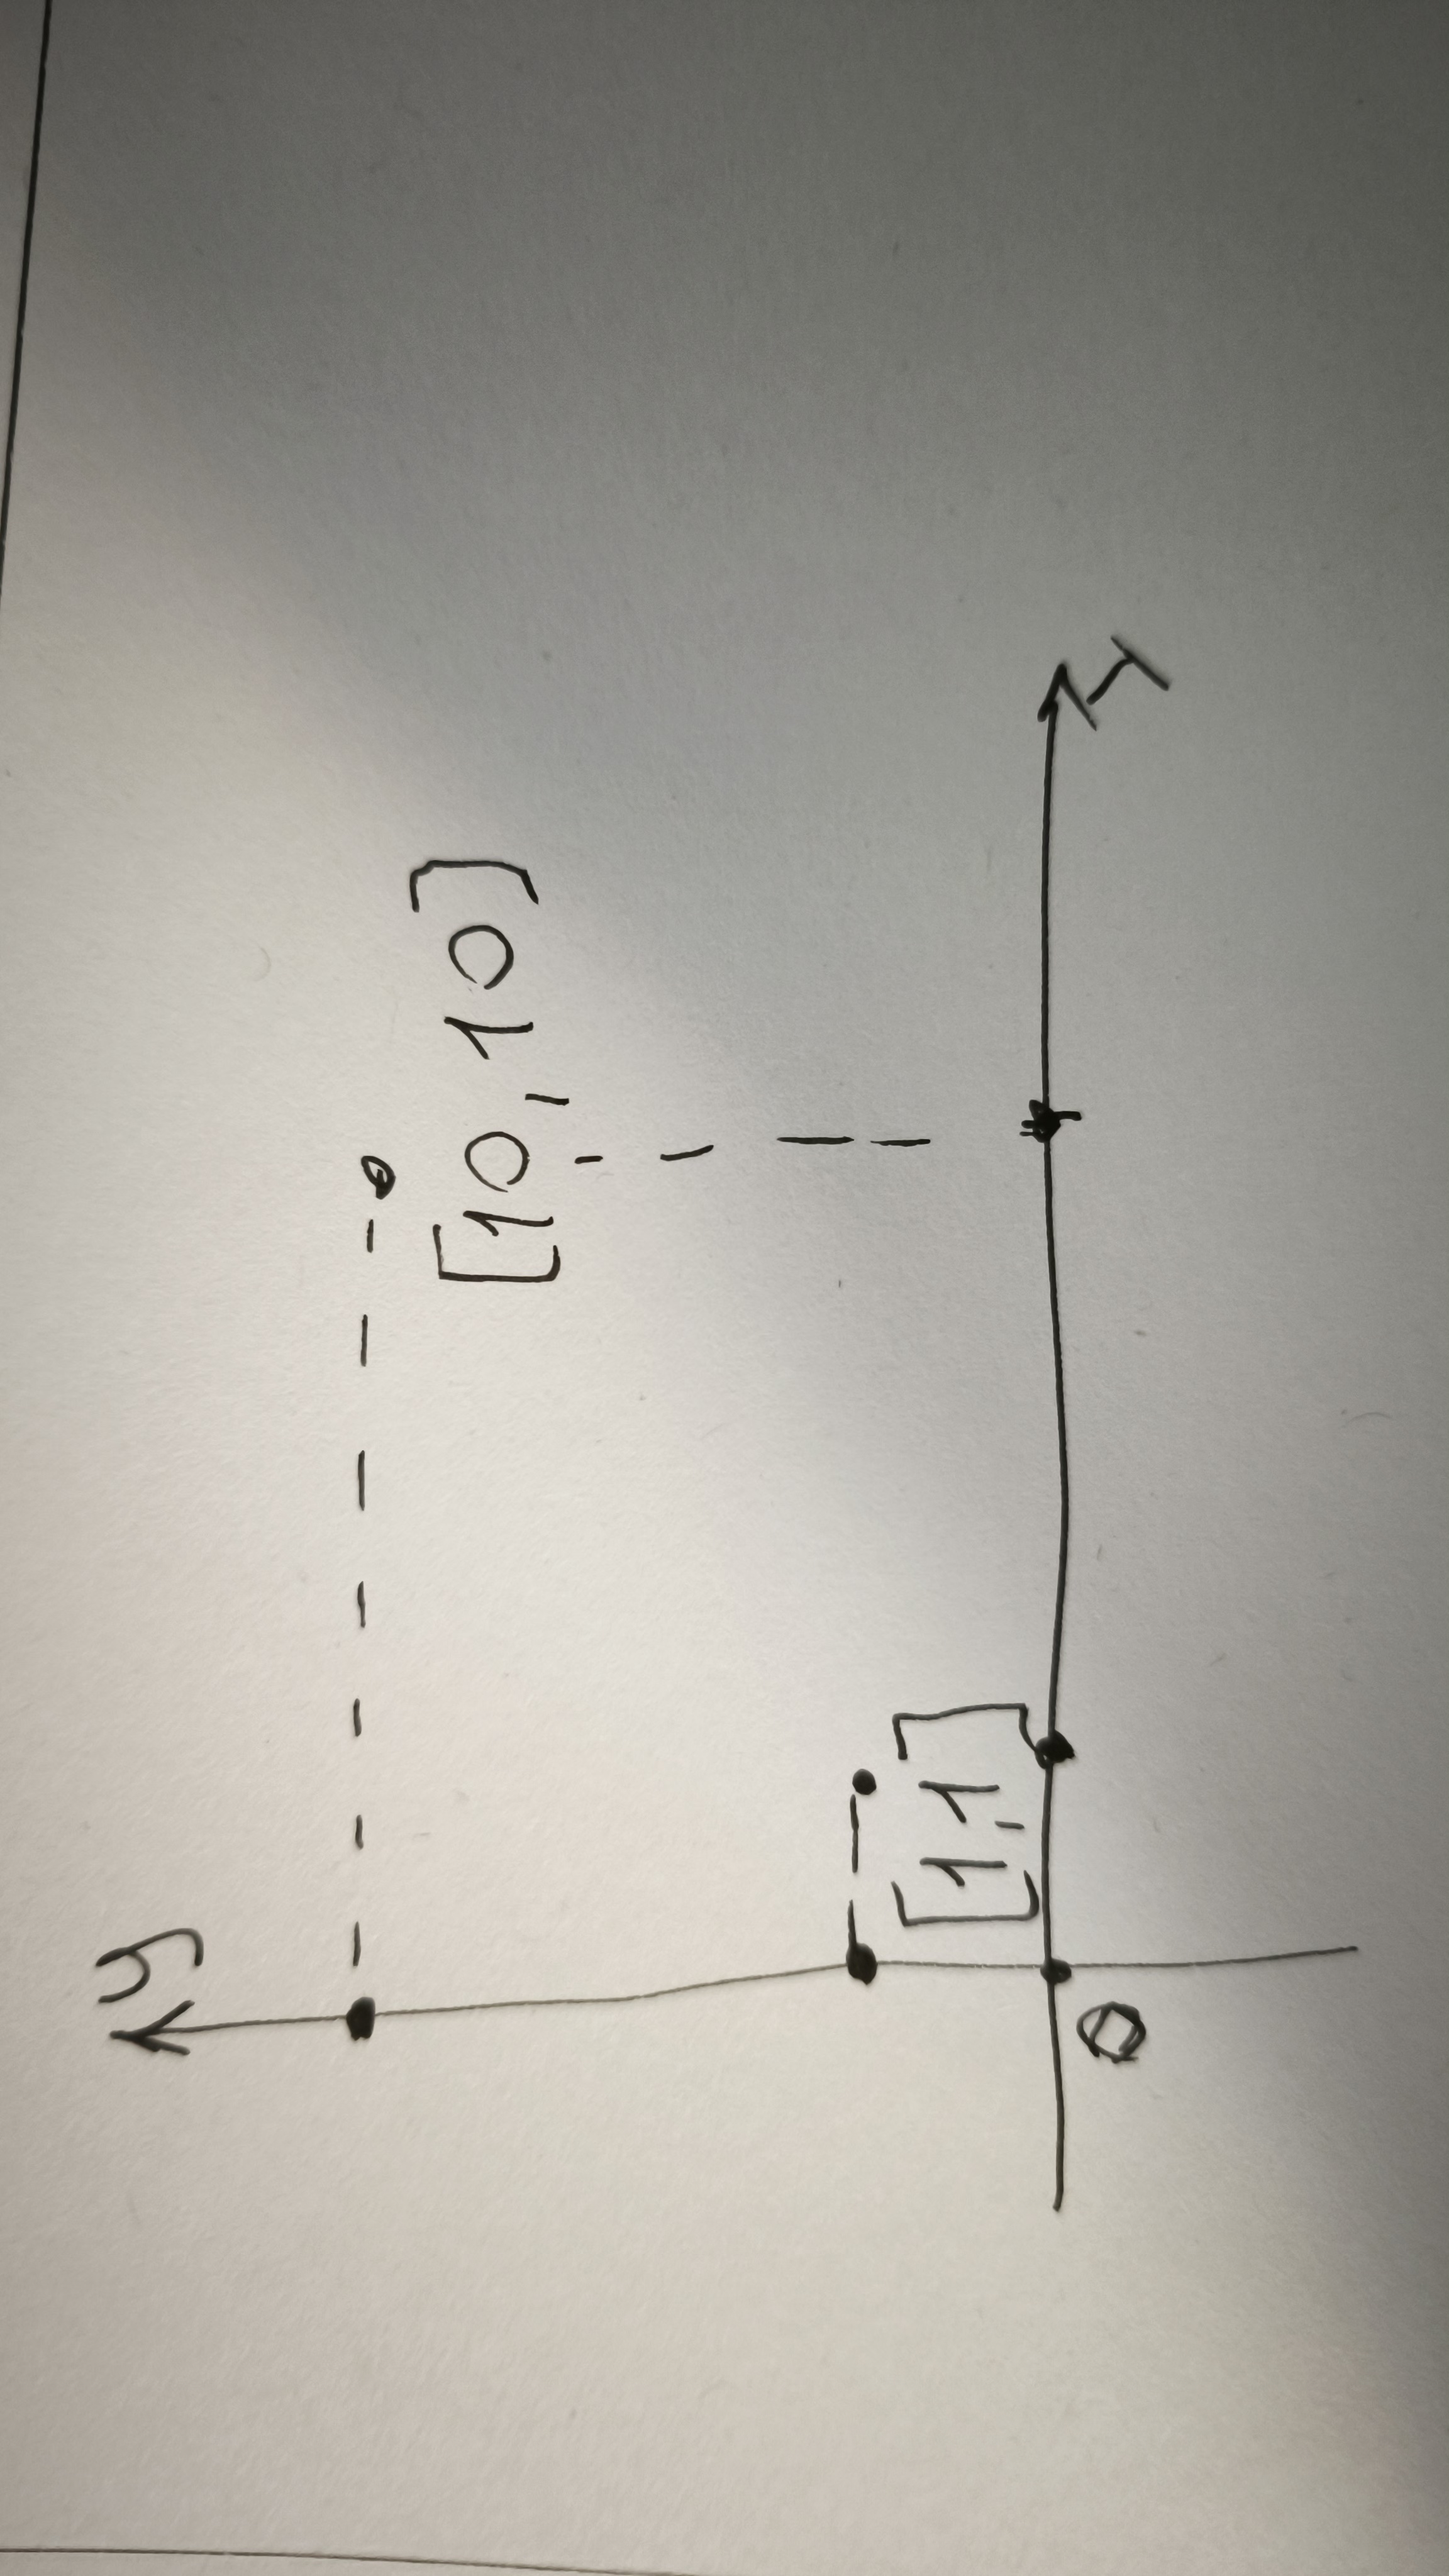 y
[10,10]
[1,1]
0
y